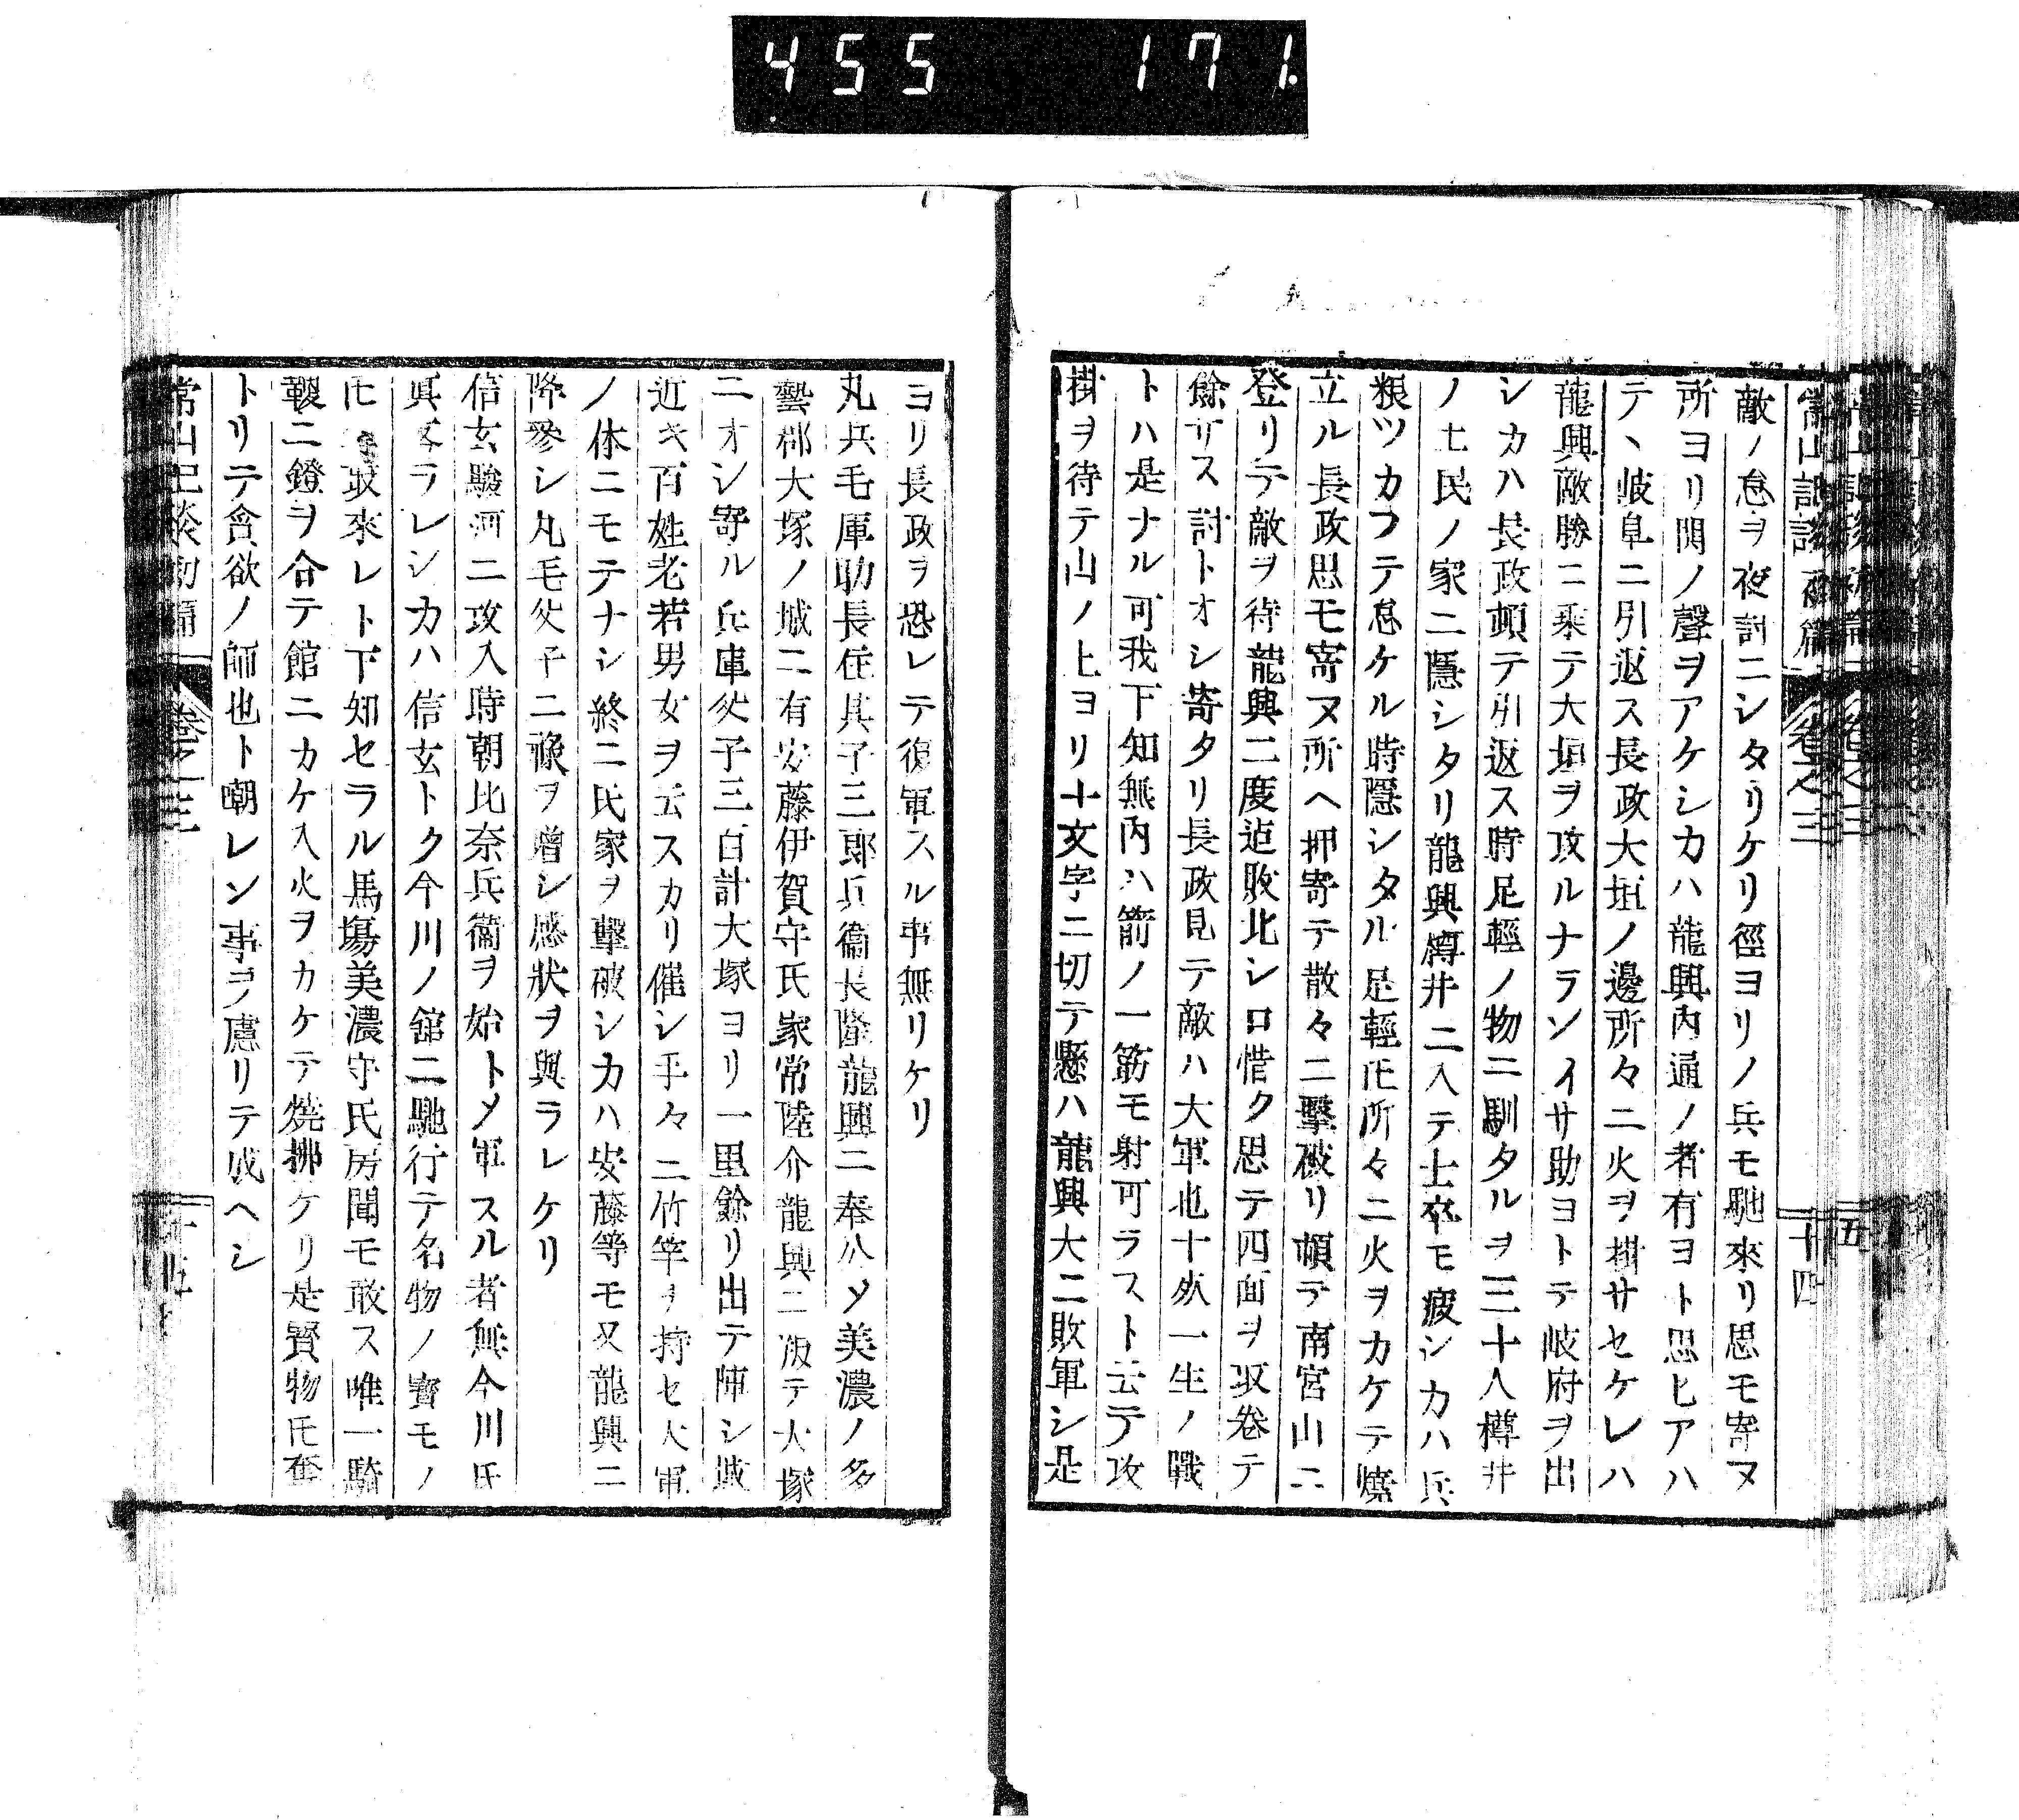 455 171.
常山記談初篇 卷之三 十四
敵ノ怠ヲ夜討ニシタリケリ徑ヨリノ兵モ馳來リ思モ寄ヌ
所ヨリ閧ノ聲ヲアケシカハ龍興內通ノ者有ヨト思ヒアハ
テヽ岐阜ニ引返ス長政大垣ノ邊所々ニ火ヲ掛サセケレハ
龍興敵勝ニ乘テ大垣ヲ攻ルナランイサ助ヨトテ岐府ヲ出
シカハ長政頓テ引返ス時足輕ノ物ニ馴タルヲ三十人樽井
ノ土民ノ家ニ隱シタリ龍興樽井ニ入テ士卒モ疲シカハ兵
粮ツカフテ怠ケル時隱シタル足輕𪜈所々ニ火ヲカケテ燒
立ル長政思モ寄ヌ所ヘ押寄テ散々ニ擊破リ頓テ南宮山ニ
登リテ敵ヲ待龍興二度迠敗北シ口惜ク思テ四面ヲ取卷テ
餘サス討トオシ寄タリ長政見テ敵ハ大軍也十死一生ノ戰
トハ是ナル可我下知無內ハ箭ノ一筋モ射可ラスト云テ攻
掛ヲ待テ山ノ上ヨリ十文字ニ切テ懸ハ龍興大ニ敗軍シ是
ヨリ長政ヲ恐レテ復軍スル事無リケリ
丸兵毛庫助長住其子三郞兵衞長隆龍興ニ奉公ソ美濃ノ多
藝郡大塚ノ城ニ有安藤伊賀守氏家常陸介龍興ニ叛テ大塚
ニオシ寄ル兵庫父子三百計大塚ヨリ一里餘リ出テ陣シ城
近キ百姓老若男女ヲ云スカリ催シ手々ニ竹竿ヲ持セ大軍
ノ休ニモテナシ終ニ氏家ヲ擊破シカハ安藤等モ又龍興ニ
降參シ丸毛父子ニ祿ヲ增シ感狀ヲ與ラレケリ
信玄駿河ニ攻入時朝比奈兵衞ヲ始トメ軍スル者無今川氏
眞落ラレシカハ信玄トク今川ノ舘ニ馳行テ名物ノ寳モノ
𪜈取來レト下知セラル馬塲美濃守氏房聞モ敢ス唯一騎
鞭ニ鐙ヲ合テ館ニカケ入火ヲカケテ燒拂ケリ是賢物𪜈奪
トリテ貪欲ノ師也ト嘲レン事ヲ慮リテ成ヘシ
常山記談初編 卷之三 十五